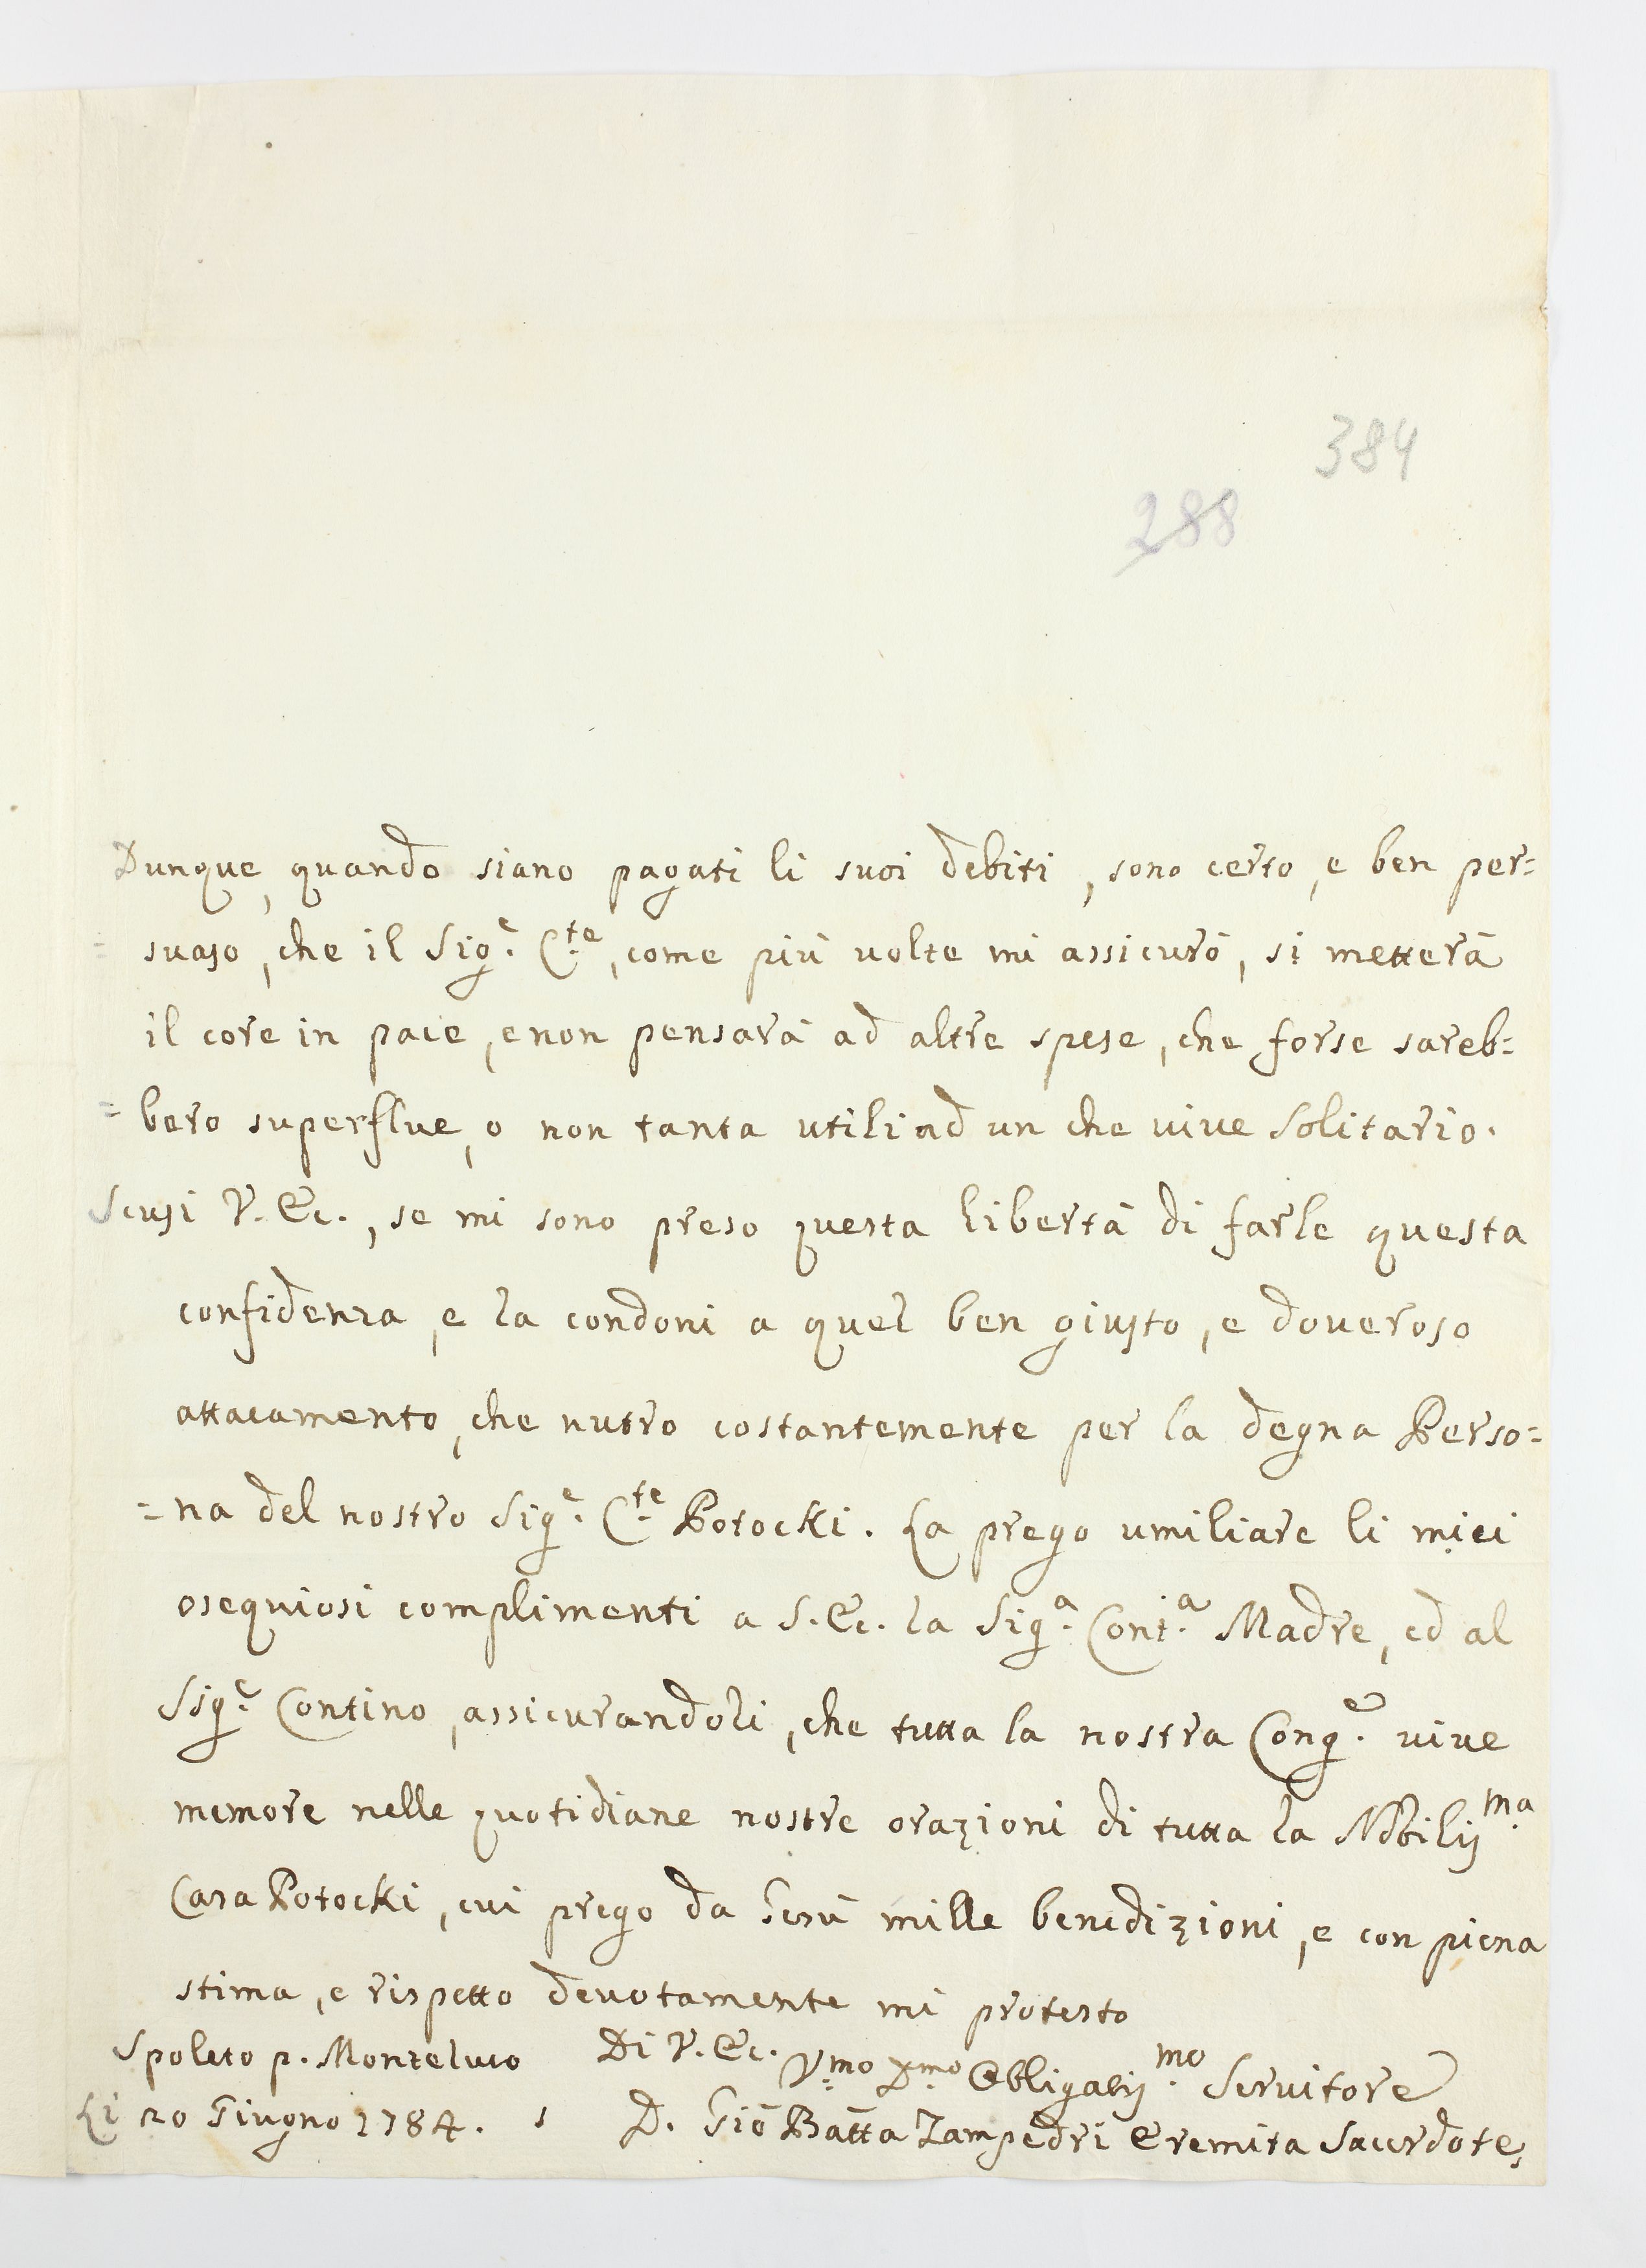 384
288
Dunque, quando siano pagati li suoi debiti, sono certo, e ben per=
=suaso, che il Sig.e C.te, come più volte mi assicurò, si metterà
il core in pace, e non pensarà ad altre spese, che forse sareb=
=bero superflue, o non tanta utili ad un che vive solitario.
Scusi V. Ec., se mi sono preso questa libertà di farle questa
confidenza, e la condoni a quel ben giusto, e doveroso
attacamento, che nutro costantemente per la degna Perso=
=na del nostro Sig.e C.te Potocki. La prego umiliare li miei
osequiosi complimenti a S. Ec. la Sig.a Cont.a Madre, ed al
Sig.e Contino, assicurandoli, che tutta la nostra Cong.e vive
memore nelle quotidiane nostre orazioni di tutta la Nobilis.ma
Casa Potocki, cui prego da Gesù mille benedizioni, e con piena
stima, e rispetto devotamente mi protesto
Spoleto p. Monteluco Di V. Ec. V.mo D.mo Obligatis.mo Servitore
Li 20 Giugno 1784. D. Giõ Batta Zampedri Eremita Sacerdote